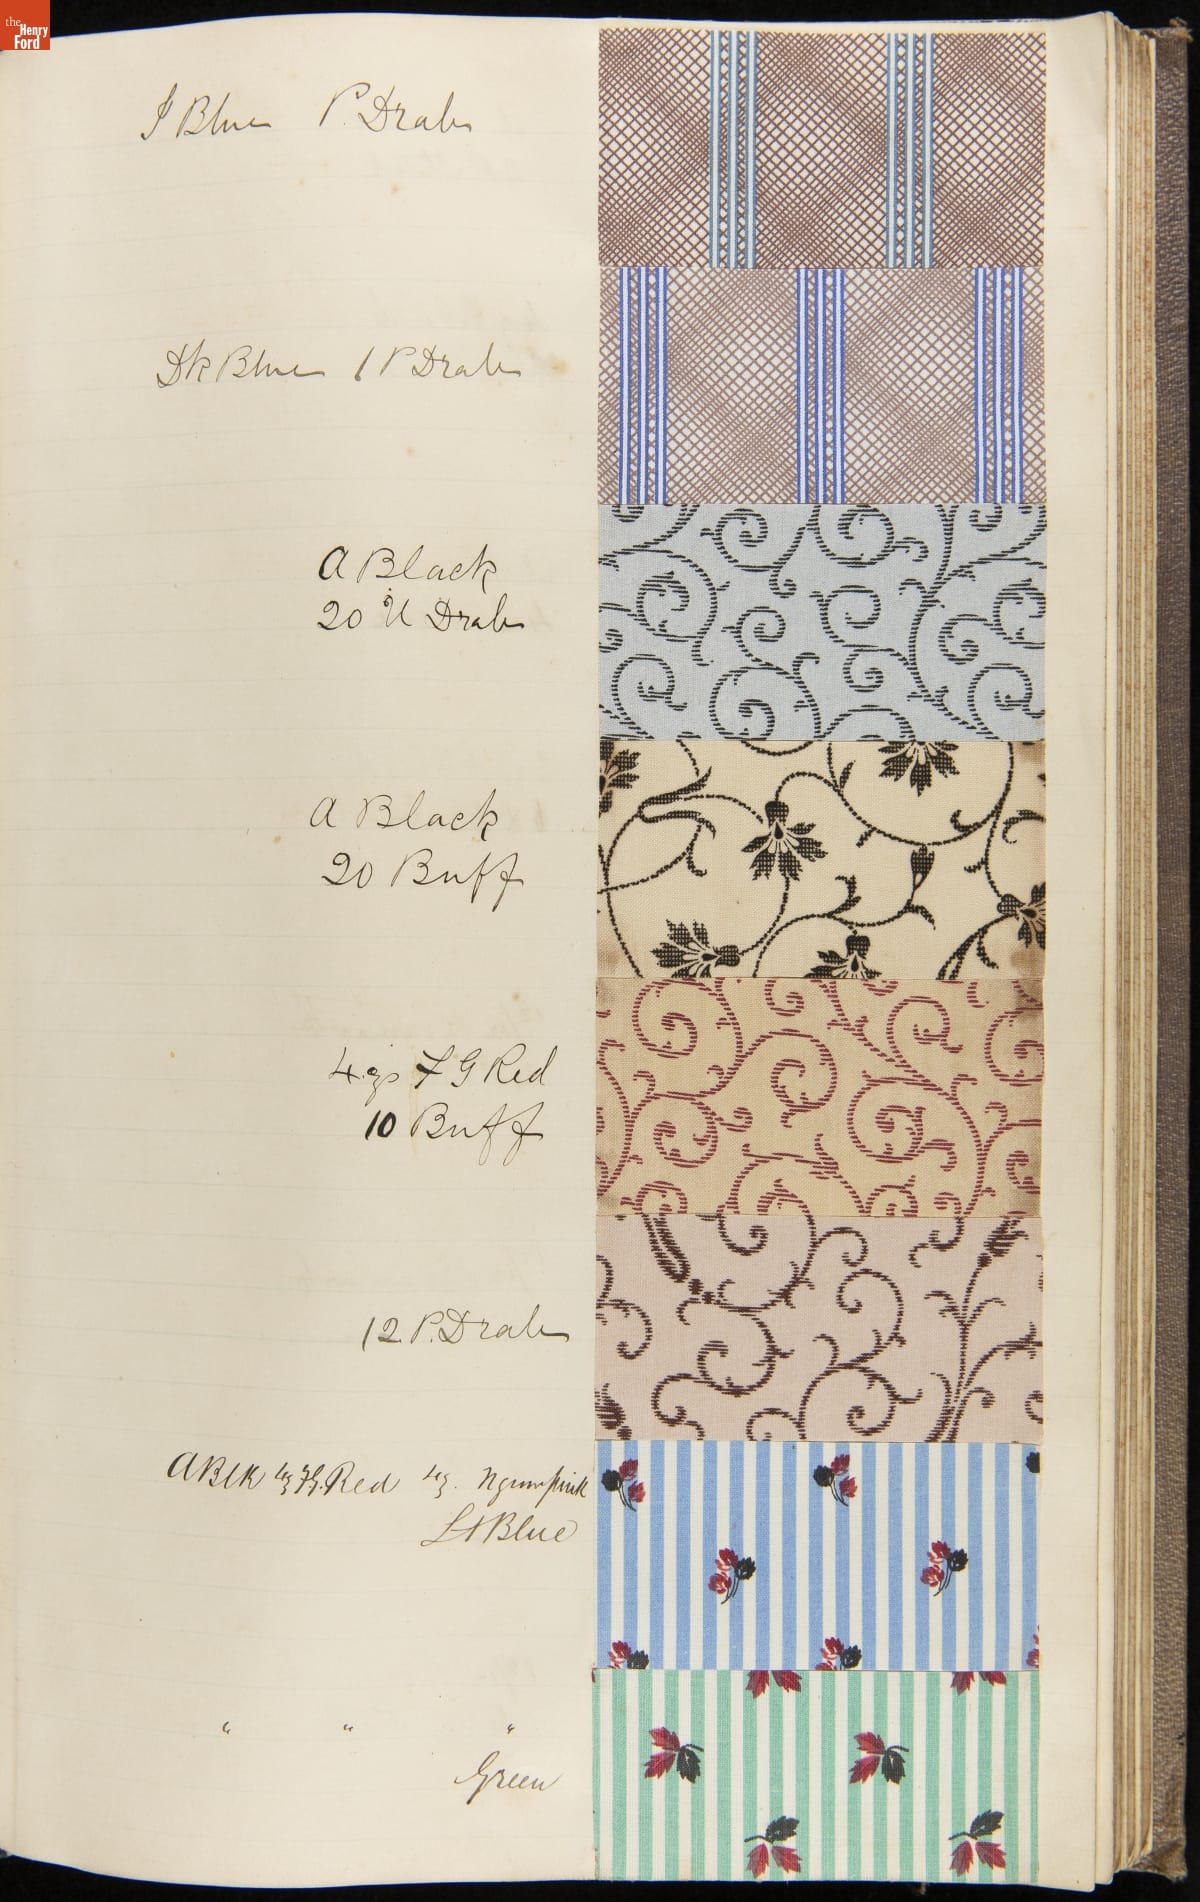 the
Henry
Ford
Blue P. Drab
Dk Blue 1 P Drab
A Black
20 U Drab
A Black
20 Buff
4 gs F G Red
10 Buff
12 P. Drab
A Blk 4g FG. Red 4g.
Lt Blue
" " "
Green